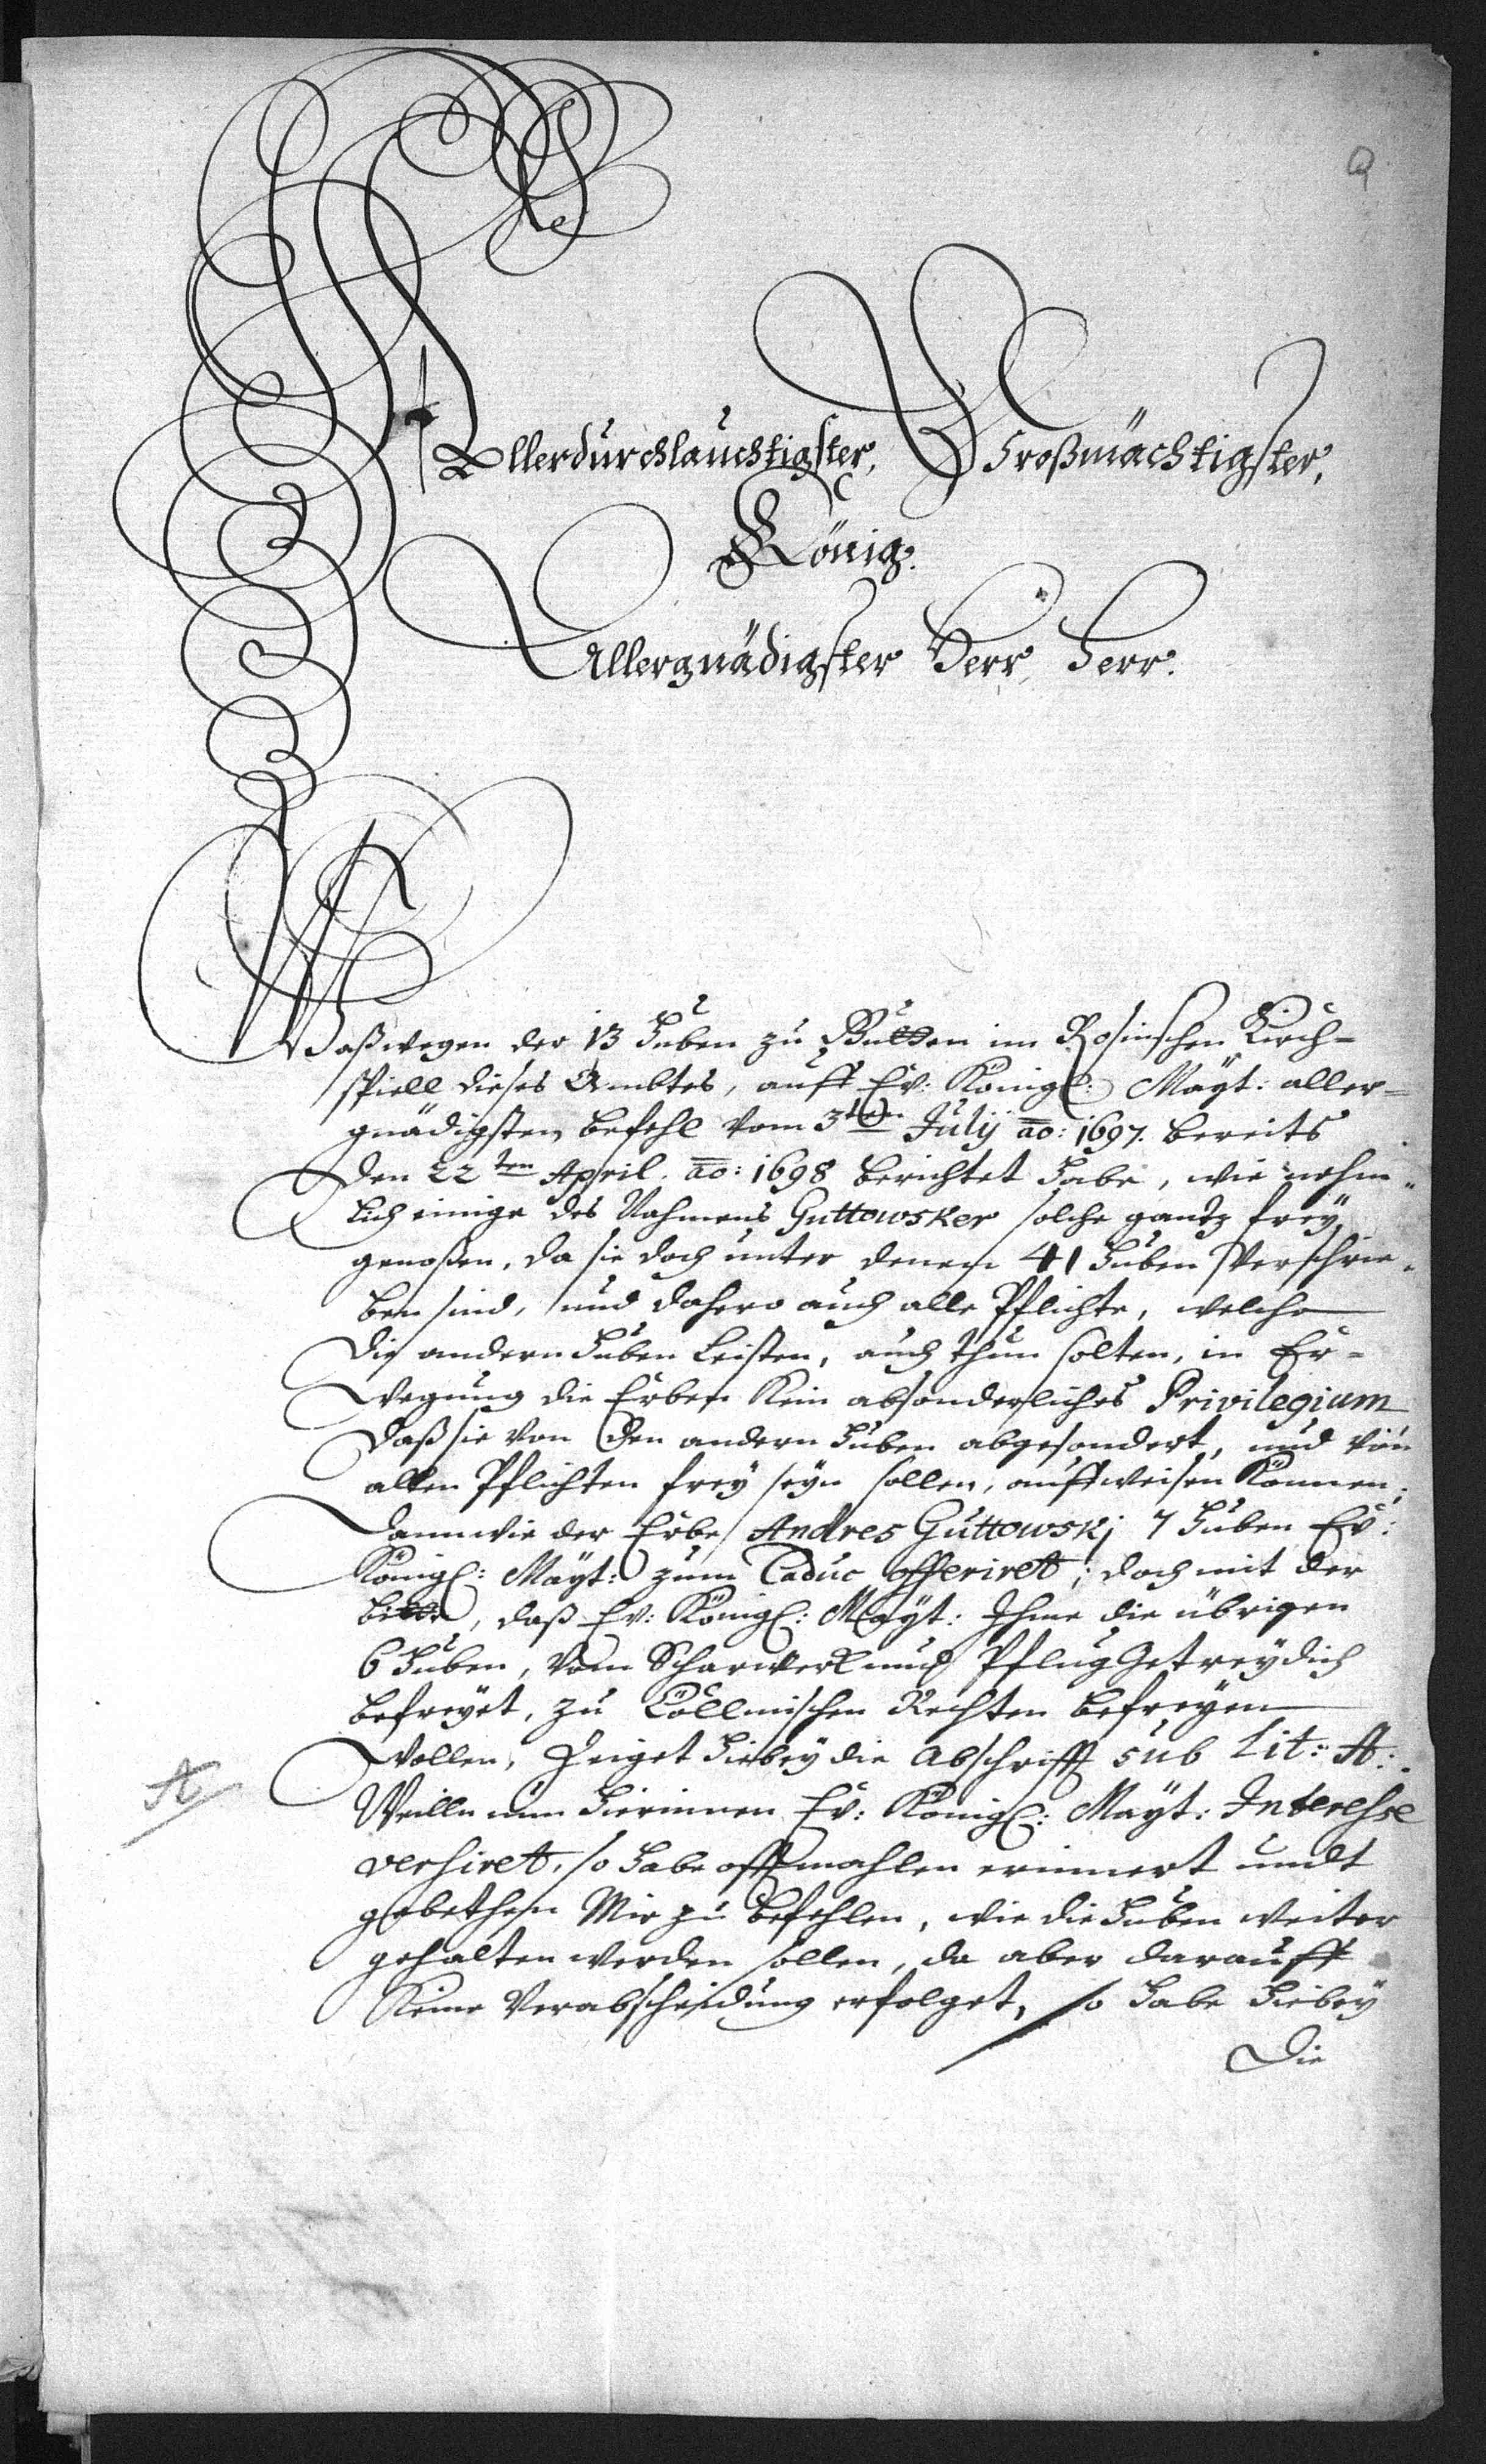 Q
Allerdurchlauchtigster, Großmächtigster,
König.
Allergnädigster Herr, Herr.
Waß wegen der 13 Huben zu Gutten im Rosinschen Kirch=
spiell dieses Ambtes, auff Ew: Königl: Mayt: aller=
gnädigsten befehl vom 3ten July ao: 1697. bereits
den 22ten April. ao: 1698 berichtet habe, wie nehm=
lich einige des Nahmens Guttowsker solche gantz frey
genoßen, da sie doch unter denen 41 Huben verschrie=
ben sind, und dahero auch alle Pflichte, welche
die andern Huben leisten, auch thun solten, in Er=
wegung die Erben kein absonderliches Privilegium
daß sie von den andern Huben abgesondert, und von
allen Pflichten frey seyn sollen, auffweisen können;
Dann wie der Erbe Andres Guttowskj 7 Huben Ew:
Königl: Mayt: zum Caduc offeriret; doch mit der
bitte, daß Ew: Königl: Mayt: Ihme die übrigen
6 Huben, vom Scharwerk und Pflug Getreydich
befreyet, zu Cöllmischen Rechten befreyen
wollen, Zeiget hiebey die Abschrifft sub Lit: A:.
A
Weille nun hierinnen Ew: Königl: Mayt: Interesse
versiret, so habe offtmahlen erinnert undt
gebethen Mir zu befehlen, wie die Huben weiter
gehalten werden sollen, da aber darauff
keine Verabscheidung erfolget, so habe hiebey
Die